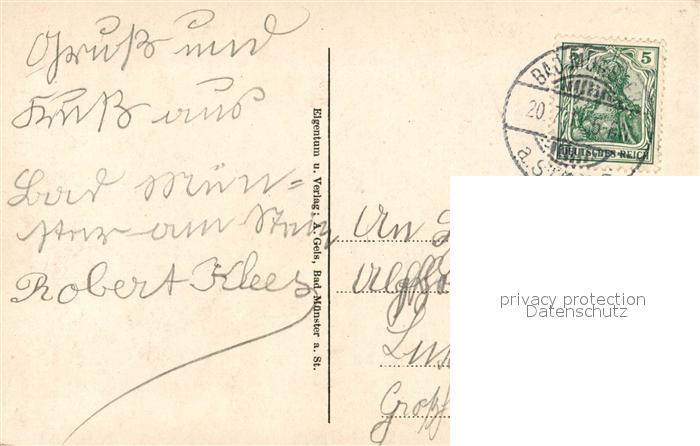 Gruß und
Kuß aus
Bad Mün-
ster am Stein
Robert Klees
Eigentum u. Verlag: A. Gels, Bad Münster a. St.
5 5
DEUTSCHES REICH
BAD MÜNS
20.7
a. S
An
privacy protection
Datenschutz